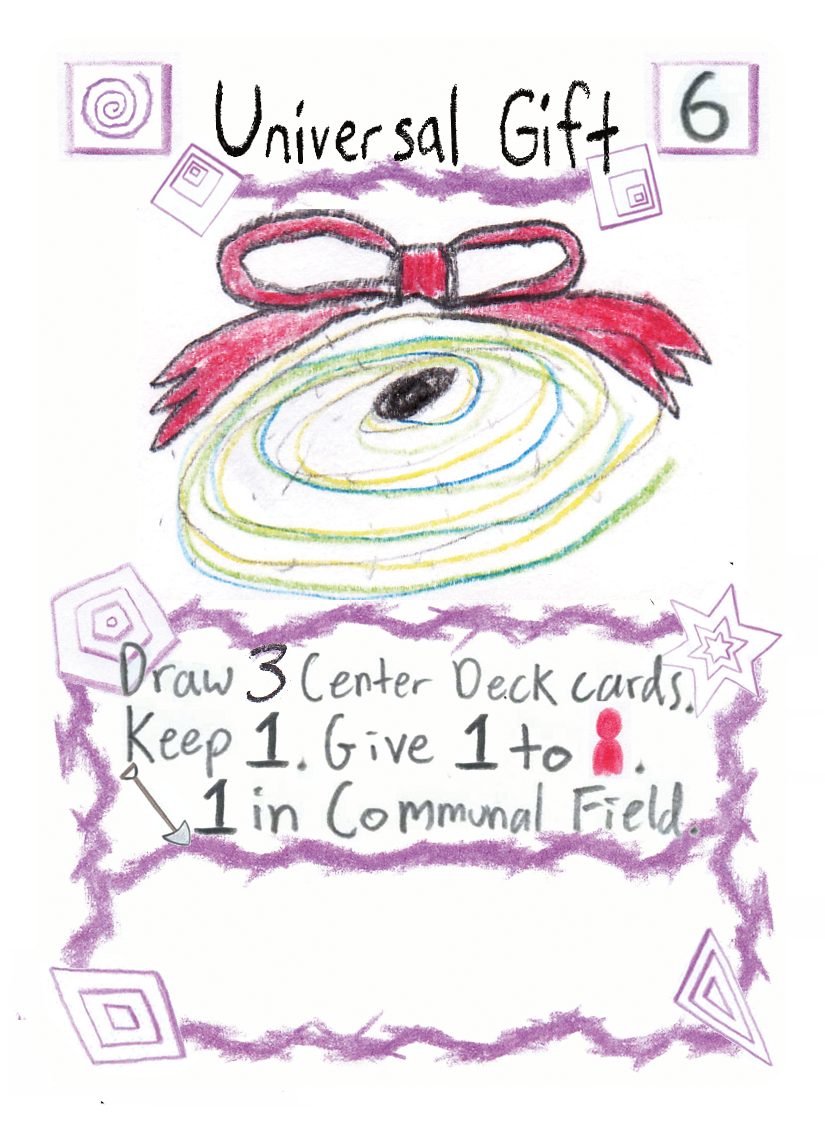 Universal Gift
6
Draw 3 Center Deck cards.
Keep 1. Give 1 to .
1 in Communal Field.